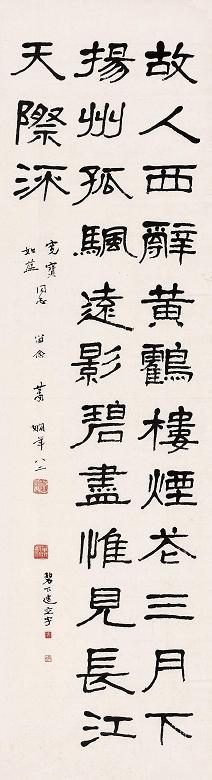 故人西辭黃鶴樓煙花三月下
揚州孤颿遠影碧盡惟見長江
天際流
寬寶
如蓝 同志 留念 萧娴年八二
碧下遺空字